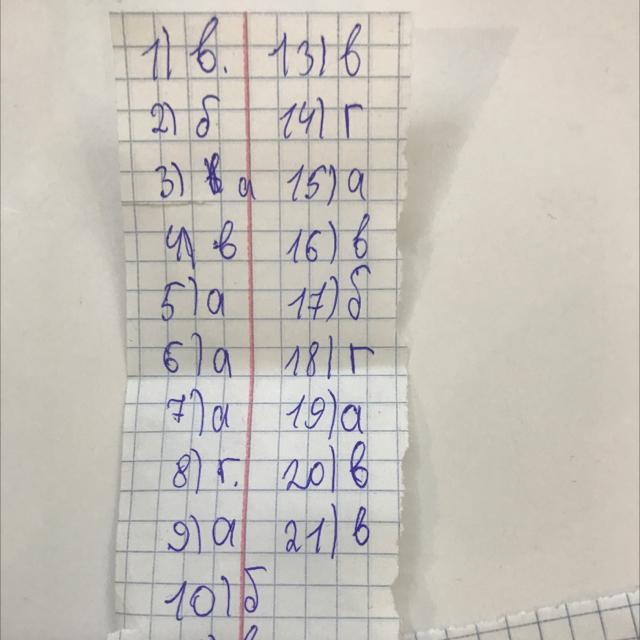 1) в.
2) б
3) а
4) в
5) а
6) а
7) а
8) г.
9) а
10) б
13) в
14) г
15) а
16) в
17) б
18) г
19) а
20) в
21) в